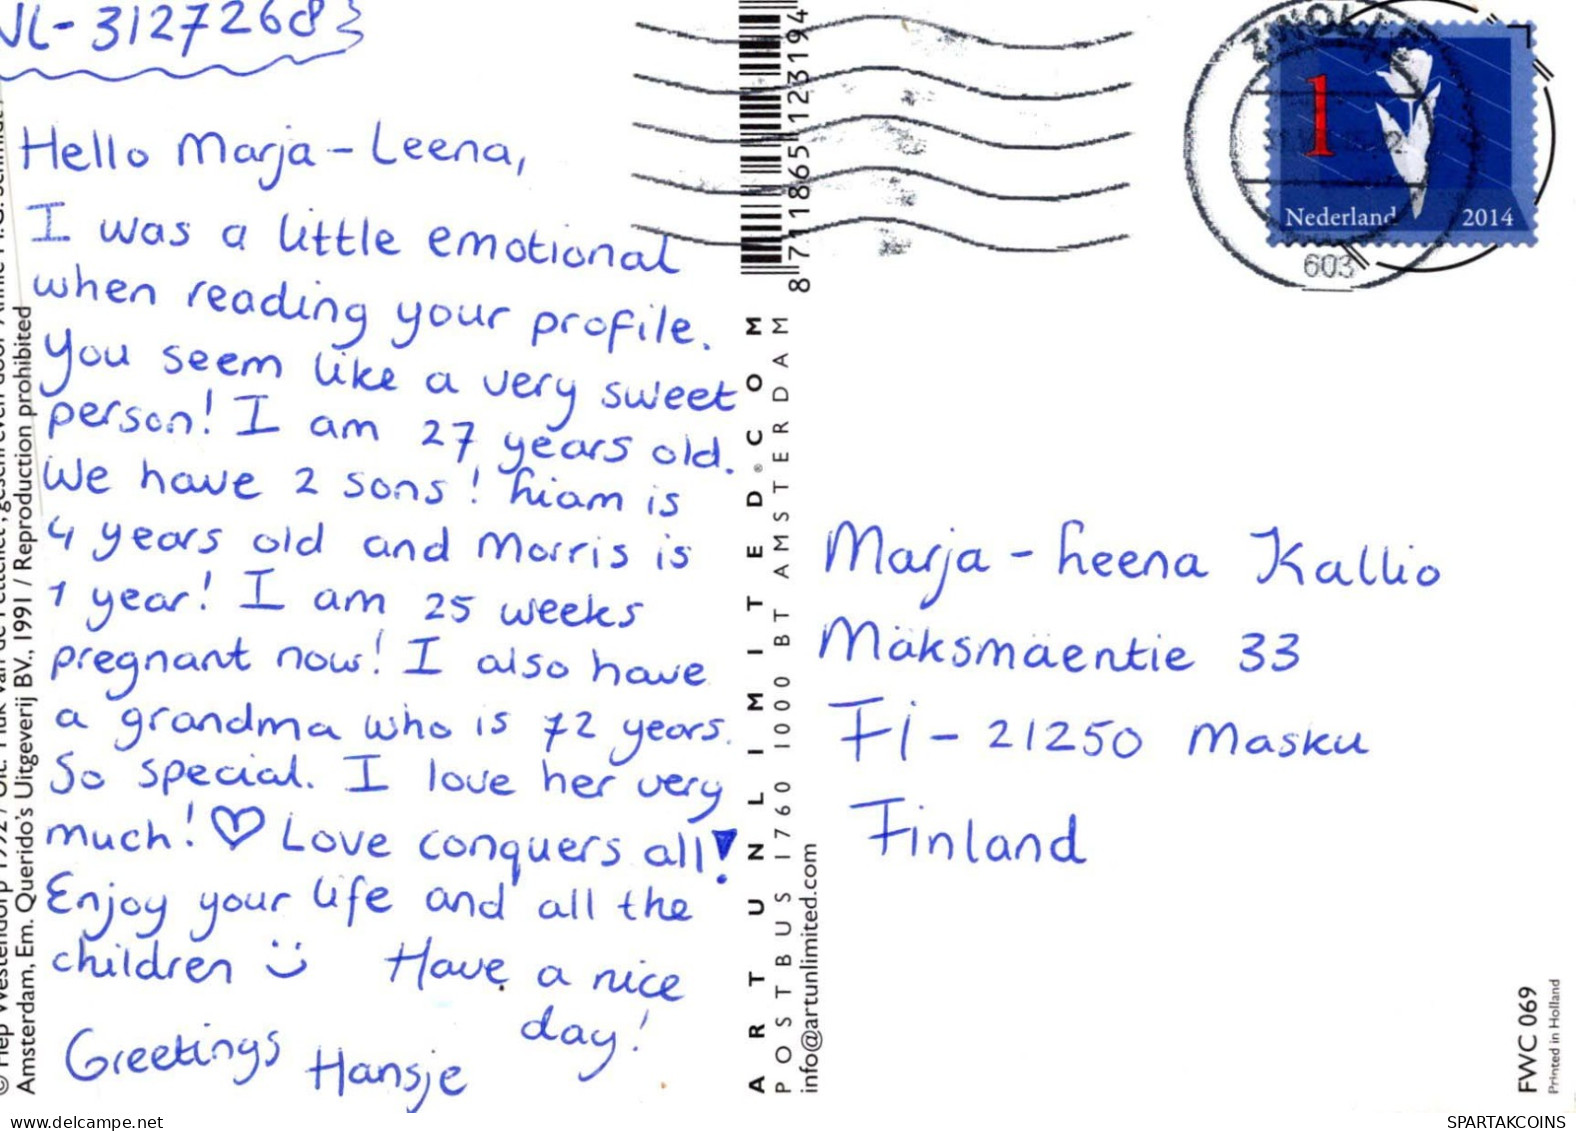 NL-3127268
Hello Marja-Leena,
I was a little emotional
when reading your profile.
You seem like a very sweet
person! I am 27 years old.
We have 2 sons! Liam is
4 years old and Morris is
1 year! I am 25 weeks
pregnant now! I also have
a grandma who is 72 years.
So special. I love her very
much! ♡ Love conquers all!
Enjoy your life and all the
children :) Have a nice
day!
Greetings Hansje
Amsterdam, Em. Querido's Uitgeverij BV., 1991 / Reproduction prohibited
ART UNLIMITED.COM
POSTBUS 1760 1000 BT AMSTERDAM
info@artunlimited.com
8 711865 123194
ZWOLLE
603
1
Nederland 2014
Marja-Leena Kallio
Mäksmäentie 33
Fi-21250 Masku
Finland
FWC 069
Printed in Holland
www.delcampe.net
SPARTAKCOINS